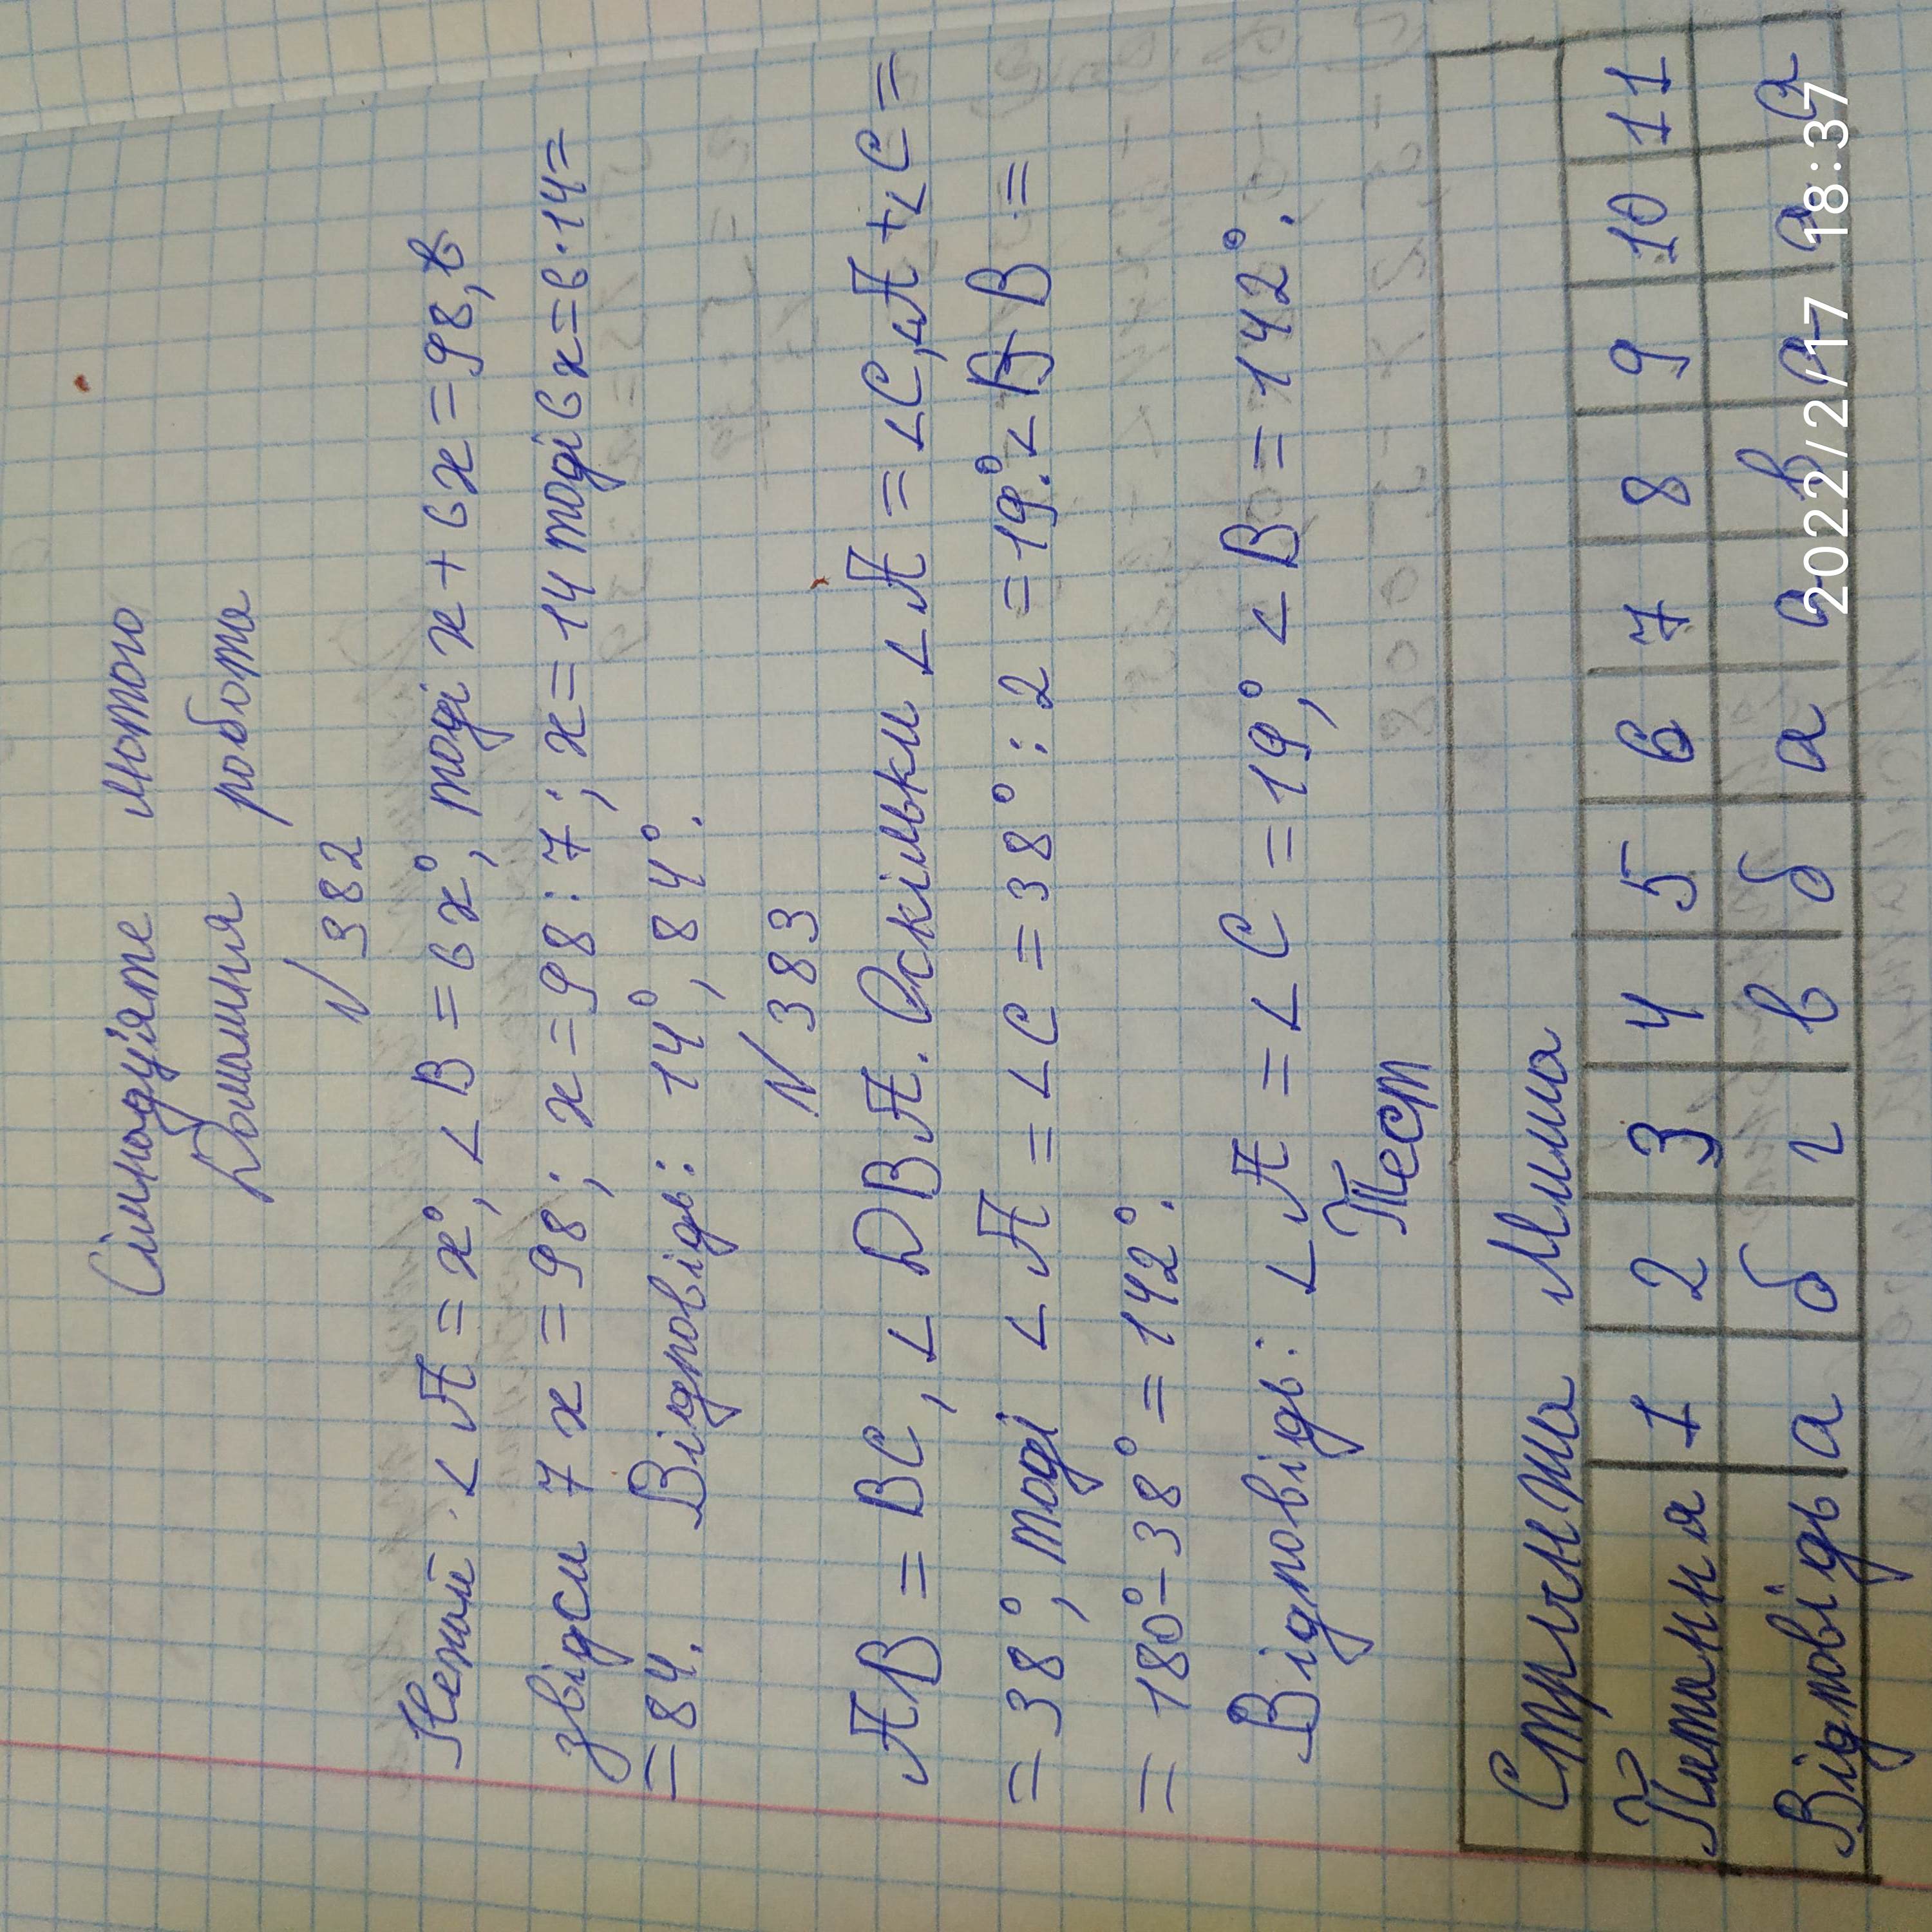 Сімнадцяте лютого
Домашня робота
№ 382
Нехай ∠A = x°, ∠B = 6x°, тоді x + 6x = 98,
звідси 7x = 98; x = 98 : 7; x = 14 тоді 6x = 6·14 =
= 84. Відповідь: 14°, 84°.
№ 383
AB = BC, ∠DBA. Оскільки ∠A = ∠C, ∠A + ∠C =
= 38°, тоді ∠A = ∠C = 38° : 2 = 19°. ∠B =
= 180° - 38° = 142°.
Відповідь: ∠A = ∠C = 19,° ∠B = 142°.
Тест
Стрижка Мила
Питання 1 2 3 4 5 6 7 8 9 10 11
Відповідь а б г в б а а в а а а
2022/2/17 18:37